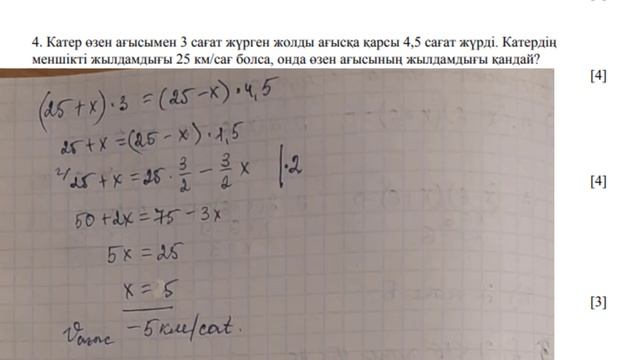 4. Катер өзен ағысымен 3 сағат жүрген жолды ағысқа қарсы 4,5 сағат жүрді. Катердің
меншікті жылдамдығы 25 км/сағ болса, онда өзен ағысының жылдамдығы қандай?
[4]
(25 + x) · 3 = (25 - x) · 4,5
25 + x = (25 - x) · 1,5
2/ 25 + x = 25 · 3/2 - 3/2 x | · 2
[4]
50 + 2x = 75 - 3x
5x = 25
x = 5
[3]
Vағыс - 5 км/сағ.